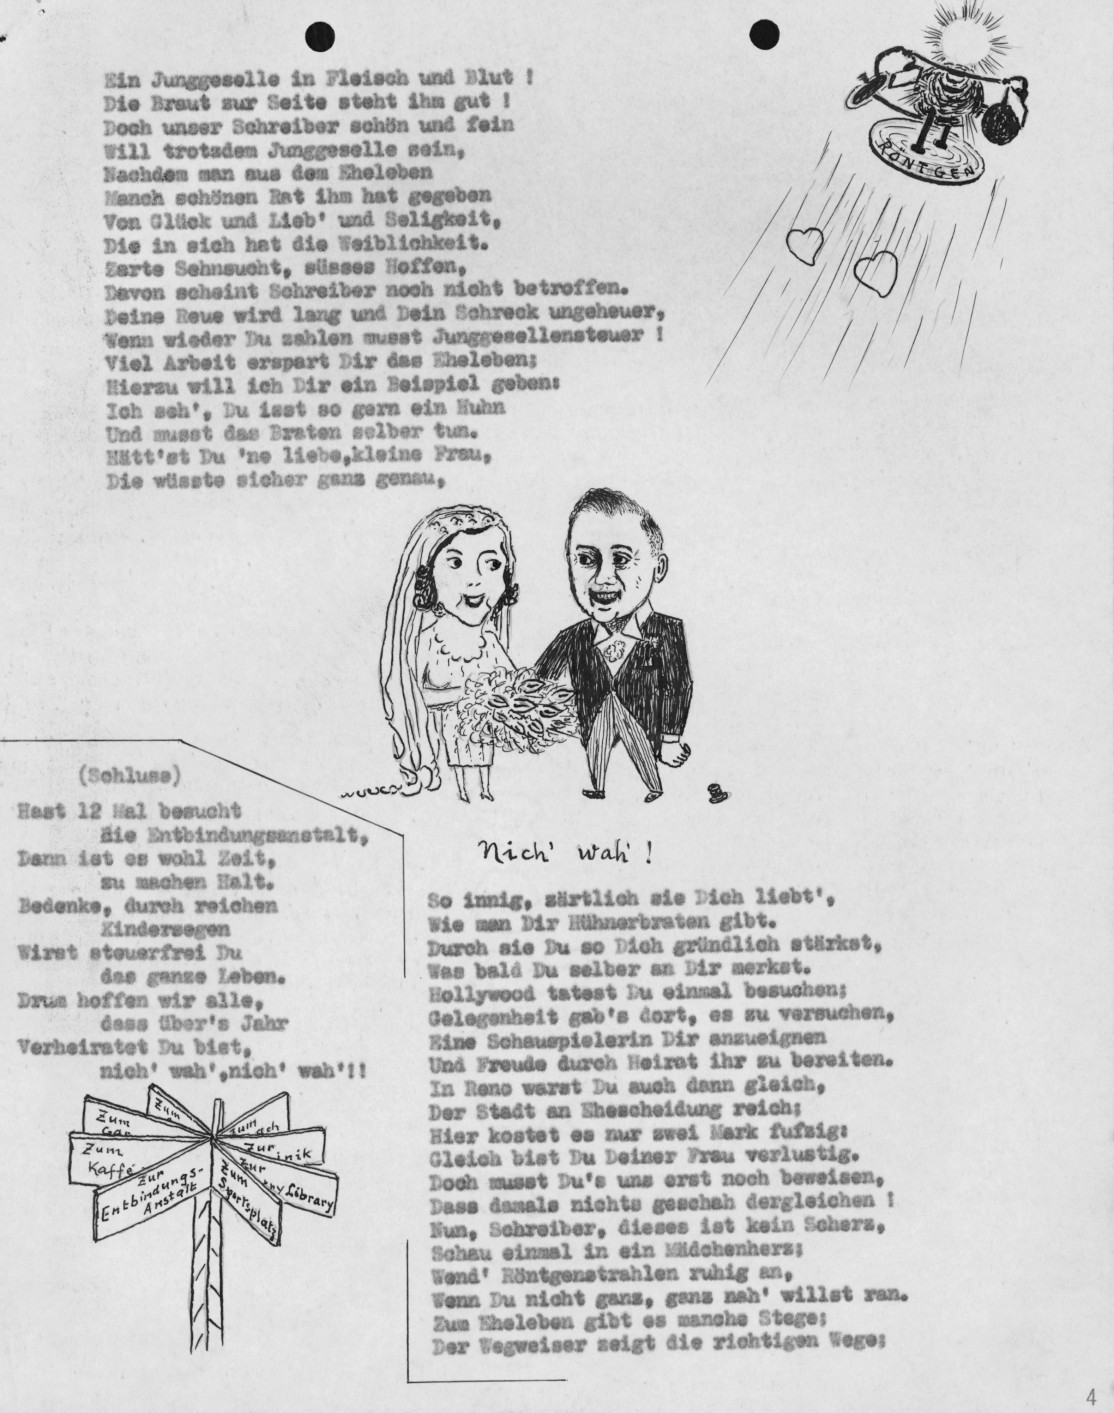 Ein Junggeselle in Fleisch und Blut !
Die Braut zur Seite steht ihm gut !
Doch unser Schreiber schön und fein
Will trotzdem Junggeselle sein,
Nachdem man aus dem Eheleben
Manch schönen Rat ihm hat gegeben
Von Glück und Lieb' und Seligkeit,
Die in sich hat die Weiblichkeit.
Zarte Sehnsucht, süsses Hoffen,
Davon scheint Schreiber noch nicht betroffen.
Deine Reue wird lang und Dein Schreck ungeheuer,
Wenn wieder Du zahlen musst Junggesellensteuer !
Viel Arbeit erspart Dir das Eheleben;
Hierzu will ich Dir ein Beispiel geben:
Ich seh', Du isst so gern ein Huhn
Und musst das Braten selber tun.
Hätt'st Du 'ne liebe,kleine Frau,
Die wüsste sicher ganz genau,
RÖNTGEN
Nich' wah' !
So innig, zärtlich sie Dich liebt',
Wie man Dir Hühnerbraten gibt.
Durch sie Du so Dich gründlich stärkst,
Was bald Du selber an Dir merkst.
Hollywood tatest Du einmal besuchen;
Gelegenheit gab's dort, es zu versuchen,
Eine Schauspielerin Dir anzueignen
Und Freude durch Heirat ihr zu bereiten.
In Reno warst Du auch dann gleich,
Der Stadt an Ehescheidung reich;
Hier kostet es nur zwei Mark fufzig:
Gleich bist Du Deiner Frau verlustig.
Doch musst Du's uns erst noch beweisen,
Dass damals nichts geschah dergleichen !
Nun, Schreiber, dieses ist kein Scherz,
Schau einmal in ein Mädchenherz;
Wend' Röntgenstrahlen ruhig an,
Wenn Du nicht ganz, ganz nah' willst ran.
Zum Eheleben gibt es manche Stege;
Der Wegweiser zeigt die richtigen Wege;
(Schluss)
Hast 12 Mal besucht
die Entbindungsanstalt,
Dann ist es wohl Zeit,
zu machen Halt.
Bedenke, durch reichen
Kindersegen
Wirst steuerfrei Du
das ganze Leben.
Drum hoffen wir alle,
dass über's Jahr
Verheiratet Du bist,
nich' wah',nich' wah'!!
Zum
Zum
Ga
Zum
Kaffé
Zur
Entbindungs-
Anstalt
zum
ach
Zur
inik
Zur
ny Library
Zum
Sportsplatz
4